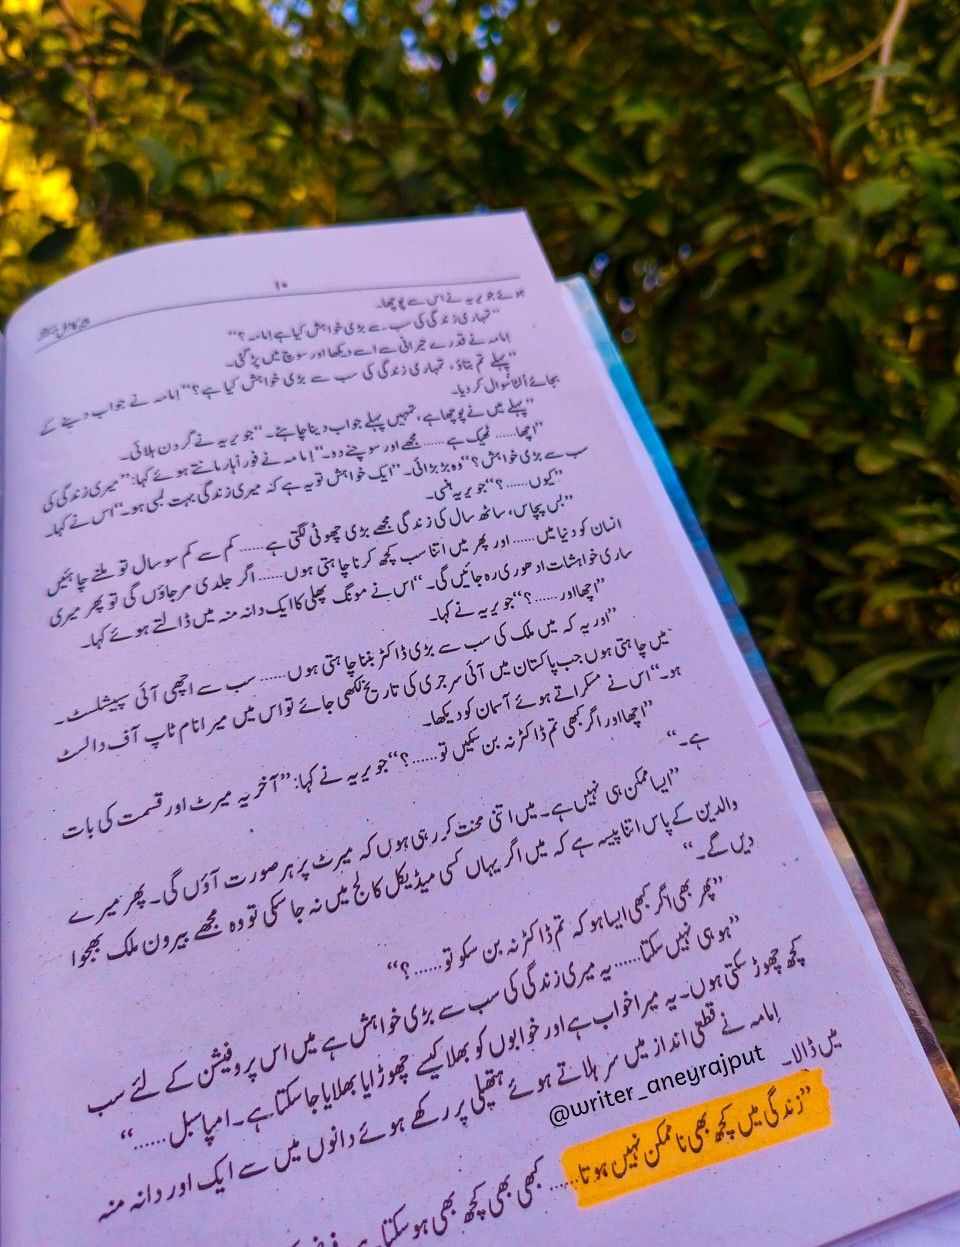 ۱۰
ہوئے جویریہ نے اس سے پوچھا۔
”تمہاری زندگی کی سب سے بڑی خواہش کیا ہے امامہ ؟“
امامہ نے قدرے حیرانی سے اسے دیکھا اور سوچ میں پڑ گئی۔
”پہلے تم بتاؤ، تمہاری زندگی کی سب سے بڑی خواہش کیا ہے؟“ امامہ نے جواب دینے کے
بجائے اُلٹا سوال کر دیا۔
”پہلے میں نے پوچھا ہے، تمہیں پہلے جواب دینا چاہئے۔“ جویریہ نے گردن ہلائی۔
”اچھا...... ٹھیک ہے...... مجھے اور سوچنے دو۔“ امامہ نے فوراً ہار مانتے ہوئے کہا: ”میری زندگی کی
سب سے بڑی خواہش؟“ وہ بڑبڑائی۔ ”ایک خواہش تو یہ ہے کہ میری زندگی بہت لمبی ہو۔“ اس نے کہا۔
”کیوں......؟“ جویریہ ہنسی۔
”بس پچاس، ساٹھ سال کی زندگی مجھے بڑی چھوٹی لگتی ہے...... کم سے کم سو سال تو ملنے چاہئیں
انسان کو دنیا میں...... اور پھر میں اتنا سب کچھ کرنا چاہتی ہوں...... اگر جلدی مر جاؤں گی تو پھر میری
ساری خواہشات ادھوری رہ جائیں گی۔“ اس نے مونگ پھلی کا ایک دانہ منہ میں ڈالتے ہوئے کہا۔
”اچھا اور......؟“ جویریہ نے کہا۔
”اور یہ کہ میں ملک کی سب سے بڑی ڈاکٹر بننا چاہتی ہوں...... سب سے اچھی آئی سپیشلسٹ۔
میں چاہتی ہوں جب پاکستان میں آئی سرجری کی تاریخ لکھی جائے تو اس میں میرا نام ٹاپ آف دا لسٹ
ہو۔“ اس نے مسکراتے ہوئے آسمان کو دیکھا۔
”اچھا اور اگر کبھی تم ڈاکٹر نہ بن سکیں تو......؟“ جویریہ نے کہا: ”آخر یہ میرٹ اور قسمت کی بات
ہے۔“
”ایسا ممکن ہی نہیں ہے۔ میں اتنی محنت کر رہی ہوں کہ میرٹ پر ہر صورت آؤں گی۔ پھر میرے
والدین کے پاس اتنا پیسہ ہے کہ میں اگر یہاں کسی میڈیکل کالج میں نہ جا سکی تو وہ مجھے بیرون ملک بھجوا
دیں گے۔“
”پھر بھی اگر کبھی ایسا ہو کہ تم ڈاکٹر نہ بن سکو تو......؟“
”ہو ہی نہیں سکتا...... یہ میری زندگی کی سب سے بڑی خواہش ہے میں اس پروفیشن کے لئے سب
کچھ چھوڑ سکتی ہوں۔ یہ میرا خواب ہے اور خوابوں کو بھلا کیسے چھوڑا یا بھلایا جا سکتا ہے۔ امپاسبل......“
امامہ نے قطعی انداز میں سر ہلاتے ہوئے ہتھیلی پر رکھے ہوئے دانوں میں سے ایک اور دانہ منہ
میں ڈالا۔
@writer_aneyrajput
”زندگی میں کچھ بھی ناممکن نہیں ہوتا...... کبھی بھی کچھ بھی ہو سکتا ہے